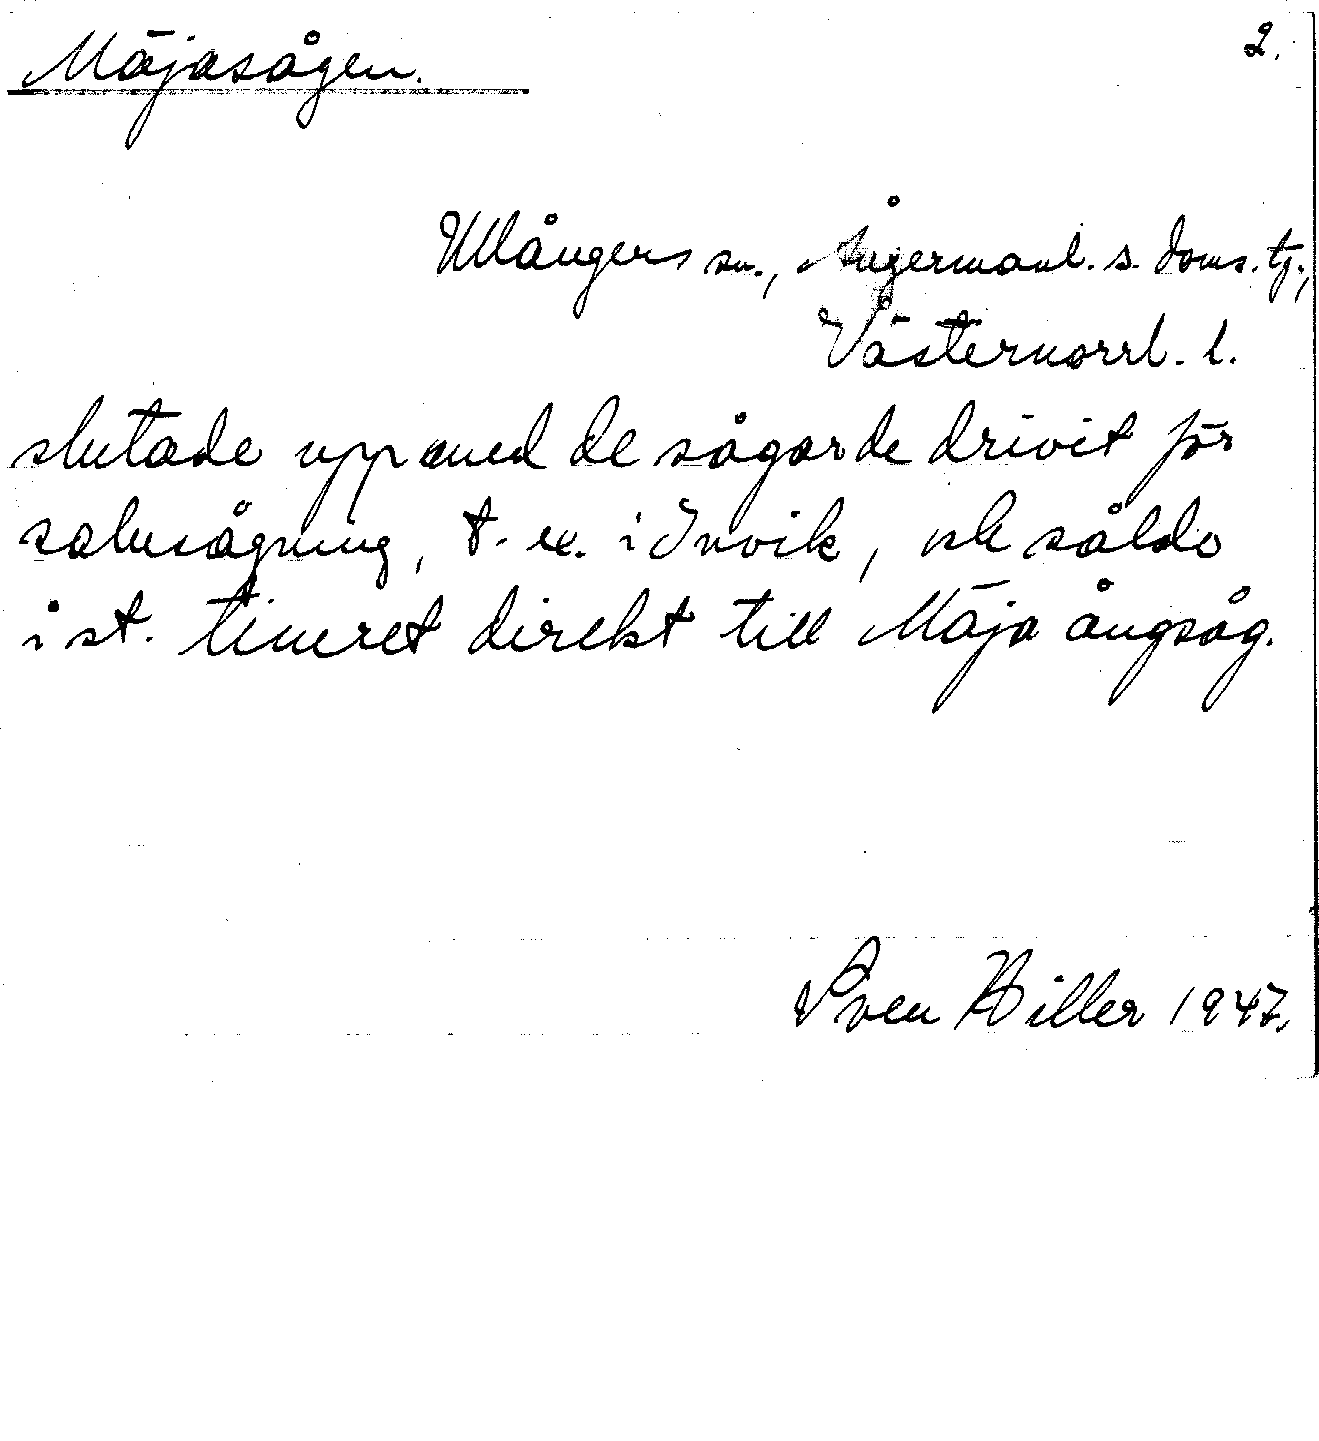 Mäjasågen.
2.
Ullångers sn., Ångermanl. s. doms. tg.,
Västernorrl. l.
slutade upp med de sågar de drivit för
salusågning, t. ex. i Invik, och sålde
i st. timret direkt till Mäja ångsåg.
Sven Hiller 1947.